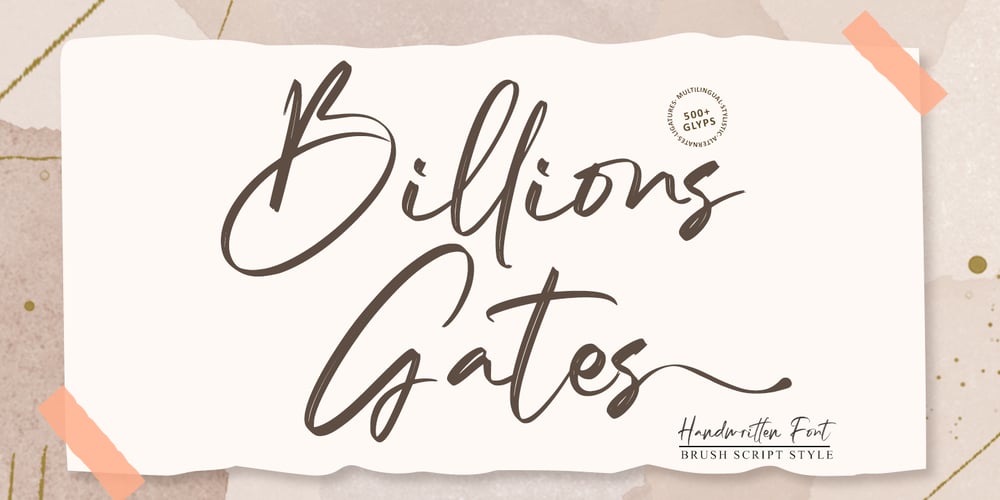 Billions
Gates
500+
GLYPS
MULTILINGUAL·STYLISTIC·ALTERNATES·LIGATURES·
Handwritten Font
BRUSH SCRIPT STYLE